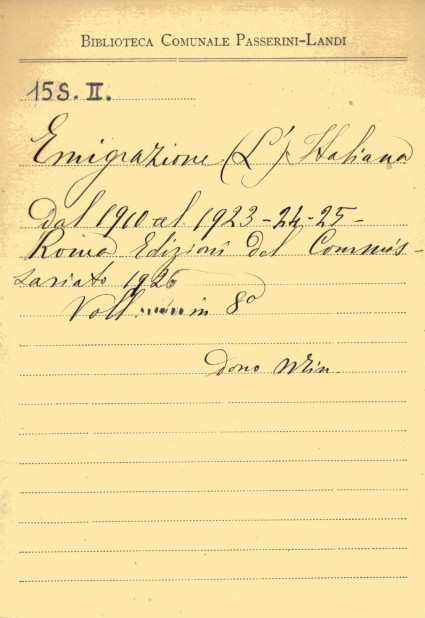 BIBLIOTECA COMUNALE PASSERINI-LANDI
15S. II.
Emigrazione (L') Italiana
dal 1910 al 1923-24-25-
Roma Edizioni del Commis-
sariato 1926
Voll. in 8º
Dono Min.